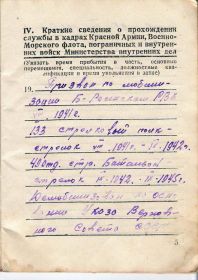 IV. Краткие сведения о прохождения
службы в кадрах Красной Армии, Военно-
Морского флота, пограничных и внутрен-
них войск Министерства внутренних дел
(Указать время прибытия в часть, основные
перемещения, специальность, должностная ква-
лификация и время увольнения в запас)
19 Призван по мобили-
зации Б- РВК
VII 1941г.
133 стрелковый полк-
стрелок VII.1941 г- IV-1942г.
480тд. стр. Батальон
стрелок IV-1942.- IX-1945г.
Демобилизован на осн-
вании Указа Верхов-
ного Совета
5